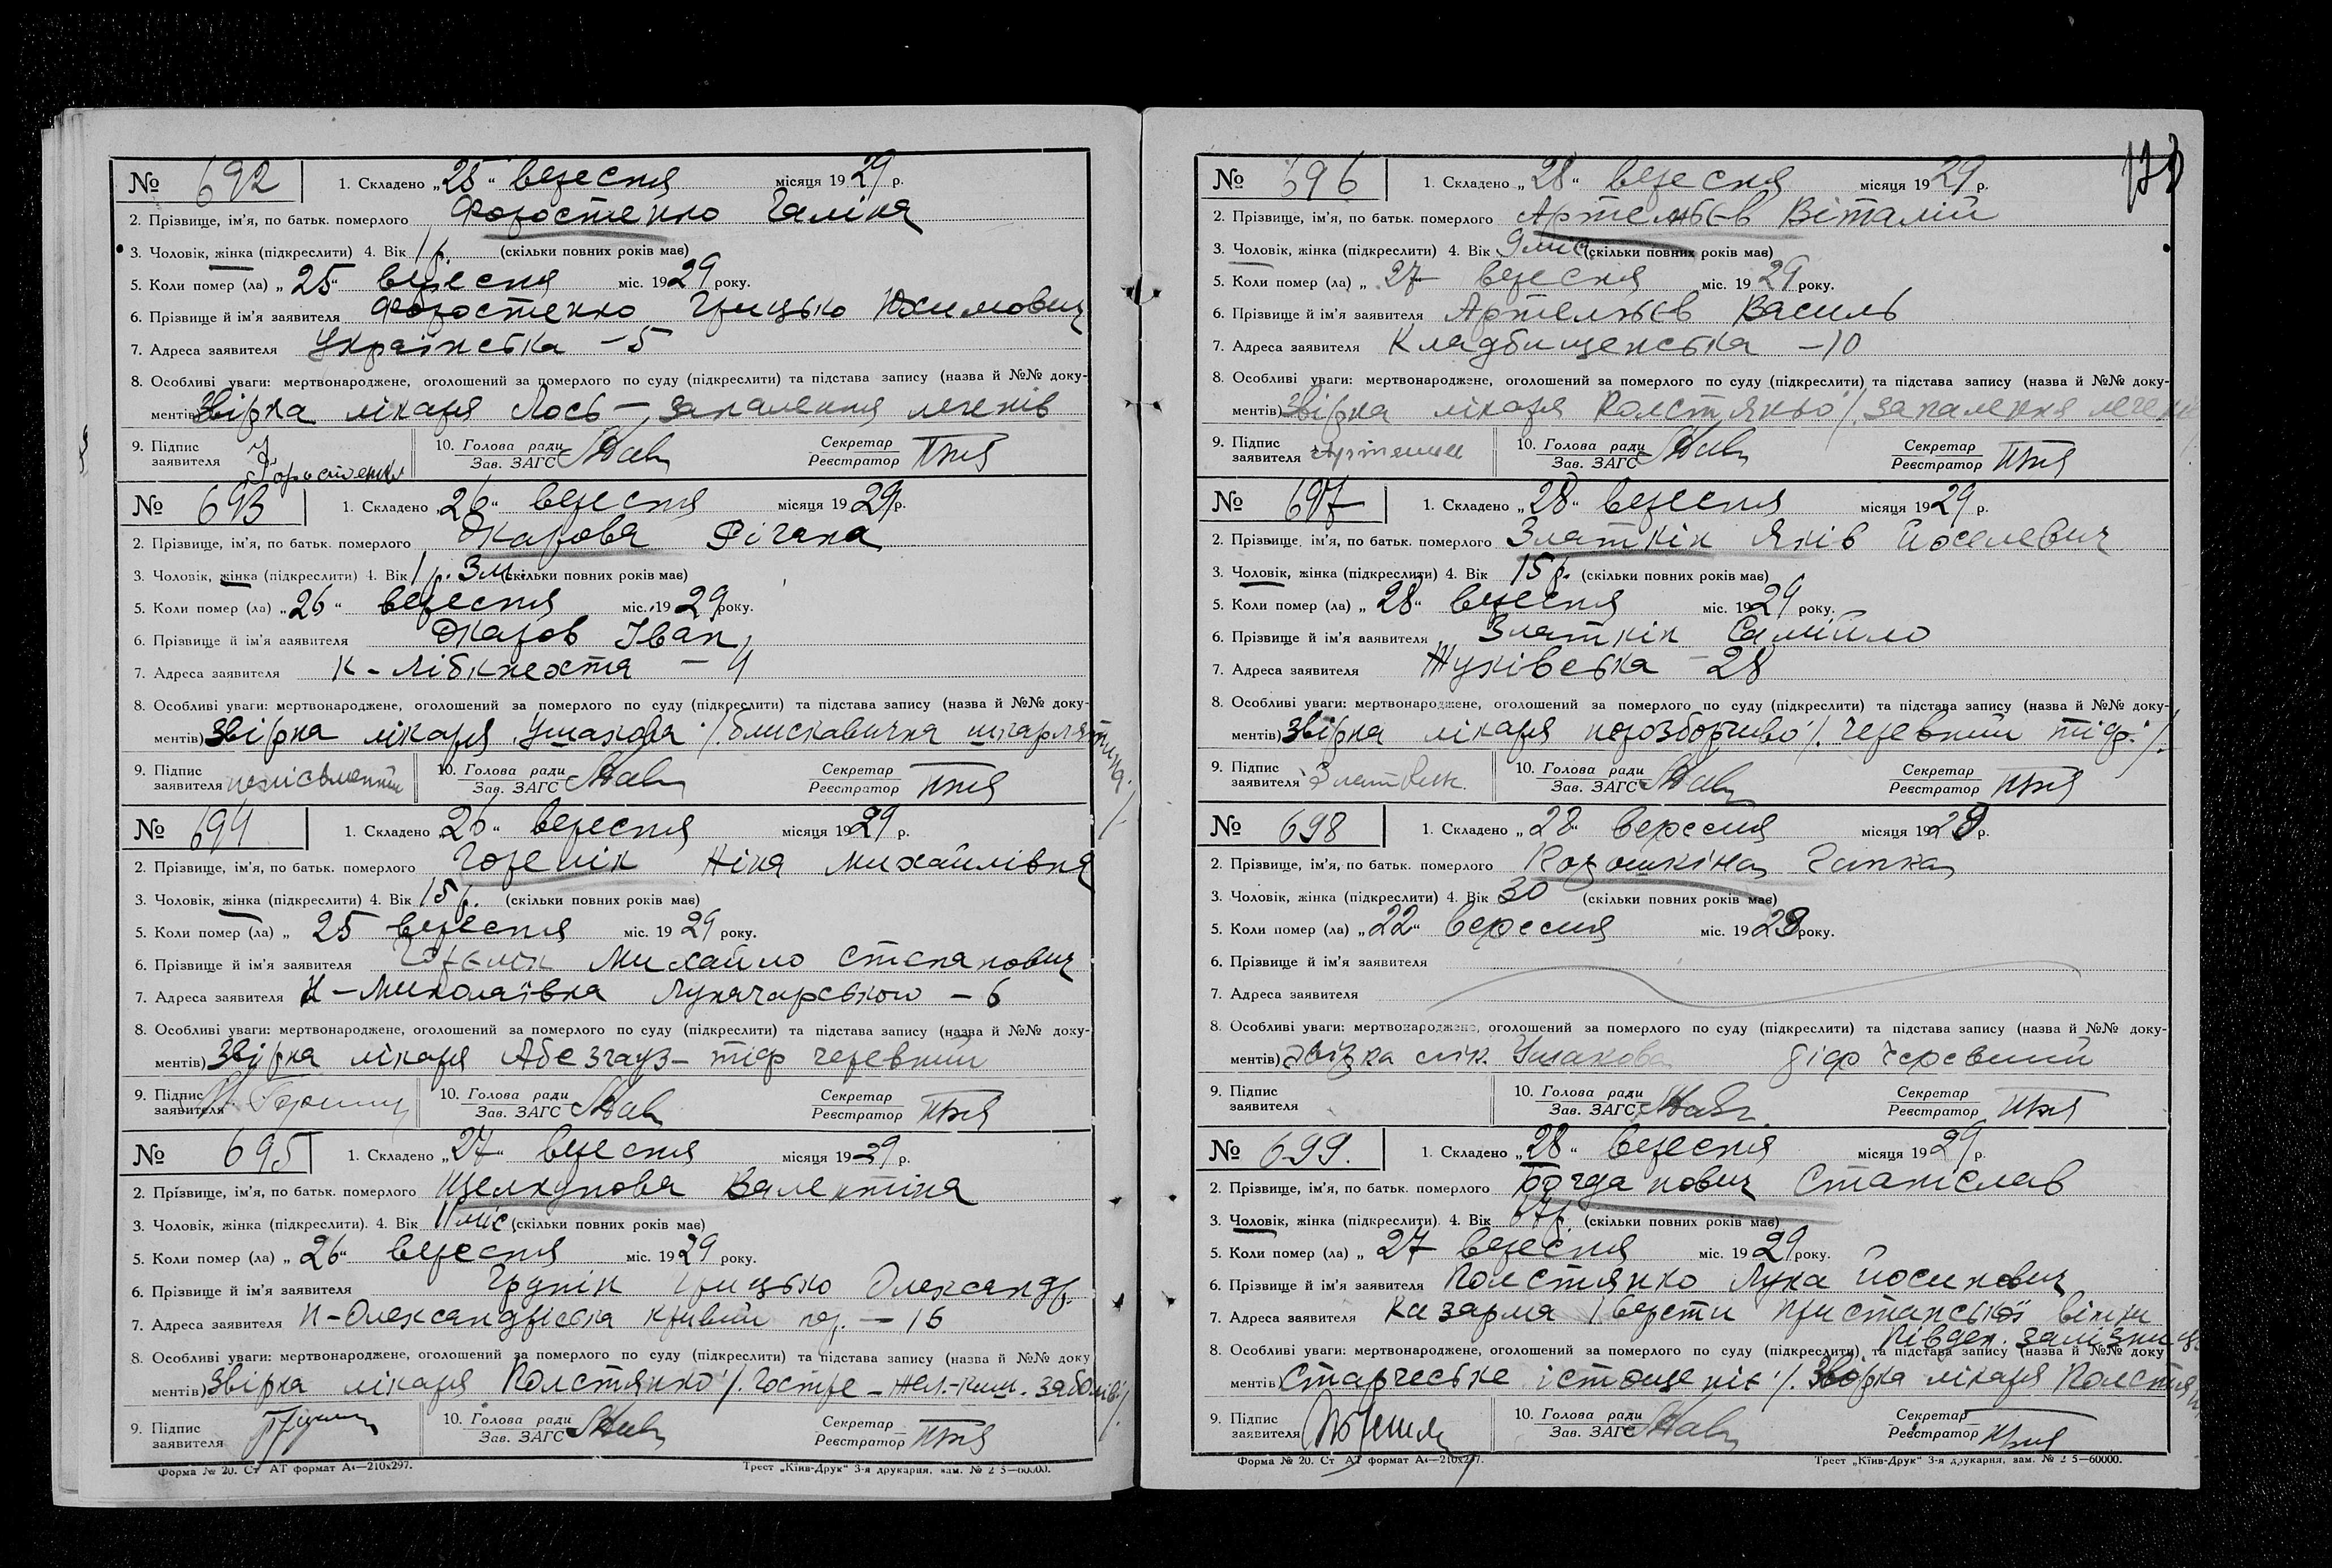 № 692 1. Складено „25“ вересня місяця 1929 р.
2. Прізвище, ім’я, по батьк. померлого Форостенко Галіна
3. Чоловік, жінка (підкреслити) 4. Вік 1 р. (скільки повних років має)
5. Коли помер (ла) „25“ вересня міс. 1929 року.
6. Прізвище й ім’я заявителя Форостенко Грицько Юхимович
7. Адреса заявителя Українська – 5
8. Особливі уваги: мертвонароджене, оголошений за померлого по суду (підкреслити) та підстава запису (назва й №№ доку-
ментів) Звірка лікаря Лось – запалення легенів
9. Підпис заявителя Форостенко 10. Голова ради Зав. ЗАГС Секретар Реєстратор
№ 693 1. Складено „26“ вересня місяця 1929 р.
2. Прізвище, ім’я, по батьк. померлого Жарова
3. Чоловік, жінка (підкреслити) 4. Вік 1 р. 3 м. (скільки повних років має)
5. Коли помер (ла) „26“ вересня міс. 1929 року.
6. Прізвище й ім’я заявителя Жаров Іван
7. Адреса заявителя К-Лібкнехта –
8. Особливі уваги: мертвонароджене, оголошений за померлого по суду (підкреслити) та підстава запису (назва й №№ доку-
ментів) Звірка лікаря Ушакова /. блискавична шкарлятина. /.
9. Підпис заявителя неписьменний 10. Голова ради Зав. ЗАГС Секретар Реєстратор
№ 694 1. Складено „26“ вересня місяця 1929 р.
2. Прізвище, ім’я, по батьк. померлого Горелік Ніна Михайлівна
3. Чоловік, жінка (підкреслити) 4. Вік 15 р. (скільки повних років має)
5. Коли помер (ла) „ 25 вересня міс. 1929 року.
6. Прізвище й ім’я заявителя Горелік Михайло Степанович
7. Адреса заявителя Н-Миколаївка Луначарського – 6
8. Особливі уваги: мертвонароджене, оголошений за померлого по суду (підкреслити) та підстава запису (назва й №№ доку-
ментів) Звірка лікаря Абезгауз – тіф черевний
9. Підпис заявителя 10. Голова ради Зав. ЗАГС Секретар Реєстратор
№ 695 1. Складено „27“ вересня місяця 1929 р.
2. Прізвище, ім’я, по батьк. померлого Щелкунова Валентіна
3. Чоловік, жінка (підкреслити). 4. Вік 11 міс (скільки повних років має)
5. Коли помер (ла) „26“ вересня міс. 1929 року.
6. Прізвище й ім’я заявителя Грунін Грицько Олександр.
7. Адреса заявителя Н-Олександрівська кривий – 16
8. Особливі уваги: мертвонароджене, оголошений за померлого по суду (підкреслити) та підстава запису (назва й №№ доку
ментів) Звірка лікаря Толстянко /. Гостре – жел.-киш.
9. Підпис заявителя 10. Голова ради Зав. ЗАГС Секретар Реєстратор
Форма № 20. Ст АТ формат А4—210x297. Трест „Київ-Друк“ 3-я друкарня, зам. № 2 5—60000.
№ 696 1. Складено „28“ вересня місяця 1929 р.
2. Прізвище, ім’я, по батьк. померлого Артемьєв Віталій
3. Чоловік, жінка (підкреслити) 4. Вік 9 міс (скільки повних років має)
5. Коли помер (ла) „ 27 вересня міс. 1929 року.
6. Прізвище й ім’я заявителя Артемьєв Василь
7. Адреса заявителя Кладбищенська – 10
8. Особливі уваги: мертвонароджене, оголошений за померлого по суду (підкреслити) та підстава запису (назва й №№ доку-
ментів) Звірка лікаря Толстянко /. запалення легенів
9. Підпис заявителя 10. Голова ради Зав. ЗАГС Секретар Реєстратор
№ 697 1. Складено „28“ вересня місяця 1929 р.
2. Прізвище, ім’я, по батьк. померлого Златкін Яків Йоселевич
3. Чоловік, жінка (підкреслити) 4. Вік 15 р. (скільки повних років має)
5. Коли помер (ла) „28“ вересня міс. 1929 року.
6. Прізвище й ім’я заявителя Златкін Самійло
7. Адреса заявителя Жуківська – 28
8. Особливі уваги: мертвонароджене, оголошений за померлого по суду (підкреслити) та підстава запису (назва й №№ доку-
ментів) Звірка лікаря нерозборчиво /. черевний тіф. /.
9. Підпис заявителя Златкин 10. Голова ради Зав. ЗАГС Секретар Реєстратор
№ 698 1. Складено „28“ вересня місяця 1929 р.
2. Прізвище, ім’я, по батьк. померлого Корошкіна Ганка
3. Чоловік, жінка (підкреслити) 4. Вік 30 (скільки повних років має)
5. Коли помер (ла) „22“ вересня міс. 1929 року.
6. Прізвище й ім’я заявителя
7. Адреса заявителя
8. Особливі уваги: мертвонароджене, оголошений за померлого по суду (підкреслити) та підстава запису (назва й №№ доку-
ментів) звірка лік. Ушакова тіф черевний
9. Підпис заявителя 10. Голова ради Зав. ЗАГС Секретар Реєстратор
№ 699. 1. Складено „28“ вересня місяця 1929 р.
2. Прізвище, ім’я, по батьк. померлого Богданович Станіслав
3. Чоловік, жінка (підкреслити). 4. Вік (скільки повних років має)
5. Коли помер (ла) „ 27 вересня міс. 1929 року.
6. Прізвище й ім’я заявителя Толстянко Лука Йосипович
7. Адреса заявителя Казарма 1 версти Пристанської вітки
Півден. залізниця
8. Особливі уваги: мертвонароджене, оголошений за померлого по суду (підкреслити) та підстава запису (назва й №№ доку-
ментів) Старческе істощеніє /. Звірка лікаря
9. Підпис заявителя 10. Голова ради Зав. ЗАГС Секретар Реєстратор
Форма № 20. Ст АТ формат А4—210x297. Трест „Київ-Друк“ 3-я друкарня, зам. № 2 5—60000.